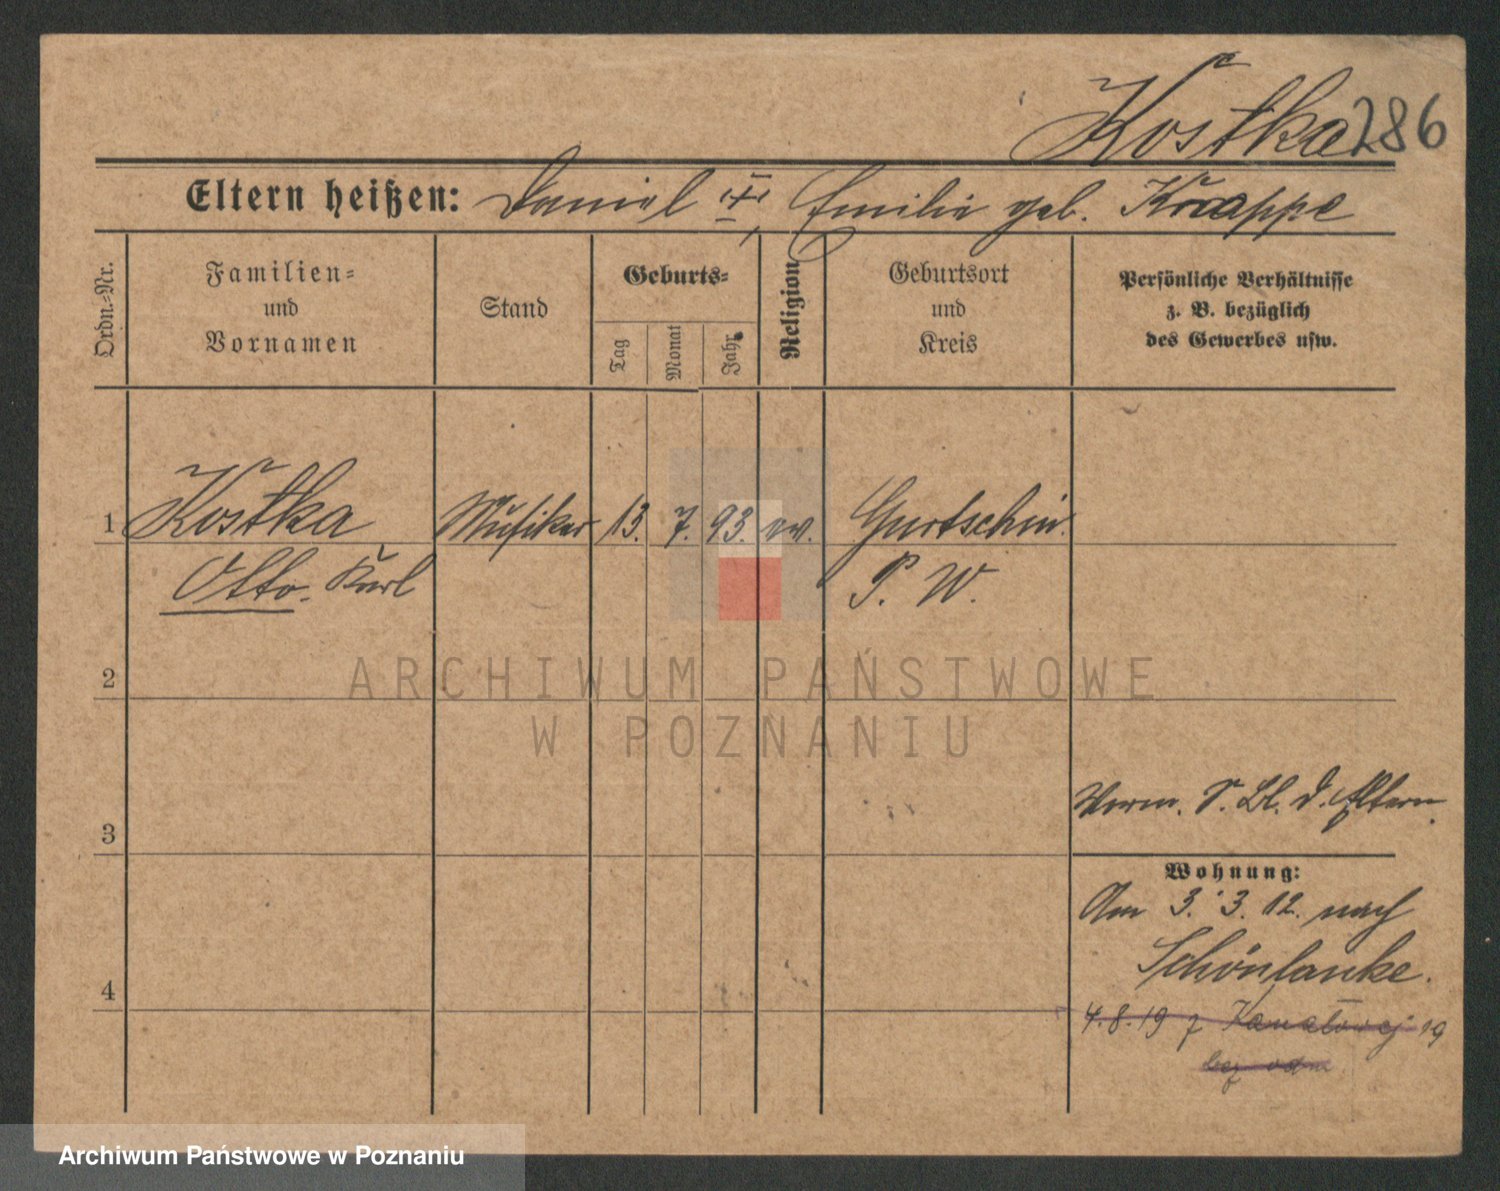 Kostka 286
Eltern heißen: Daniel ‚+‘, Emilie geb. Knappe
Ordn.-Nr.
Familien-
und
Vornamen
Stand
Geburts-
Tag
Monat
Jahr
Religion
Geburtsort
und
Kreis
Persönliche Verhältnisse
z. B. bezüglich
des Gewerbes usw.
1 Kostka Musiker 13. 7. 93. ev. Gurtschin.
Otto. Karl P. W.
2
ARCHIWUM PAŃSTWOWE
W POZNANIU
3
Verm. S. Bl. d. Eltern.
Wohnung:
Am 3. 3. 12. nach
Schönlanke.
4
4.8.19 z Kanałowej 19
bez odm
Archiwum Państwowe w Poznaniu